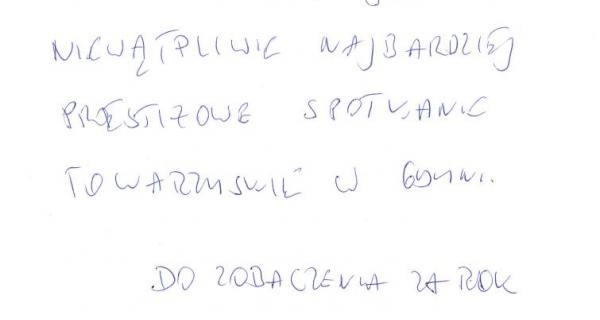 NIEWĄTPLIWIE NAJBARDZIEJ
PRESTIŻOWE SPOTKANIE
TOWARZYSKIE W GDYNI.
DO ZOBACZENIA ZA ROK